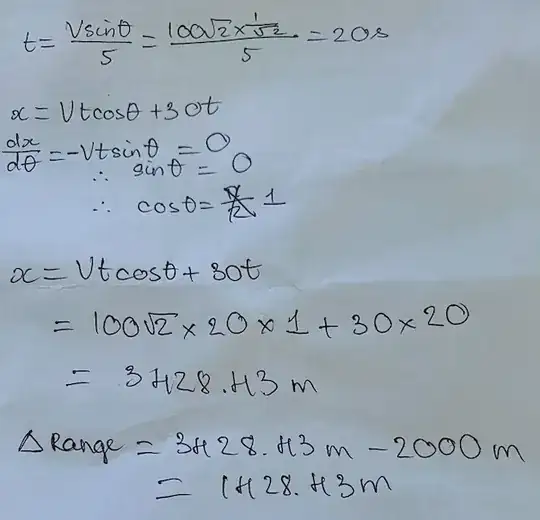 t = Vsinθ/5 = (100√2 × 1/√2)/5 = 20s
x = Vtcosθ + 30t
dx/dθ = -Vtsinθ = 0
∴ sinθ = 0
∴ cosθ = 1
x = Vtcosθ + 30t
= 100√2 × 20 × 1 + 30 × 20
= 3428.43 m
Δ Range = 3428.43 m - 2000 m
= 1428.43 m